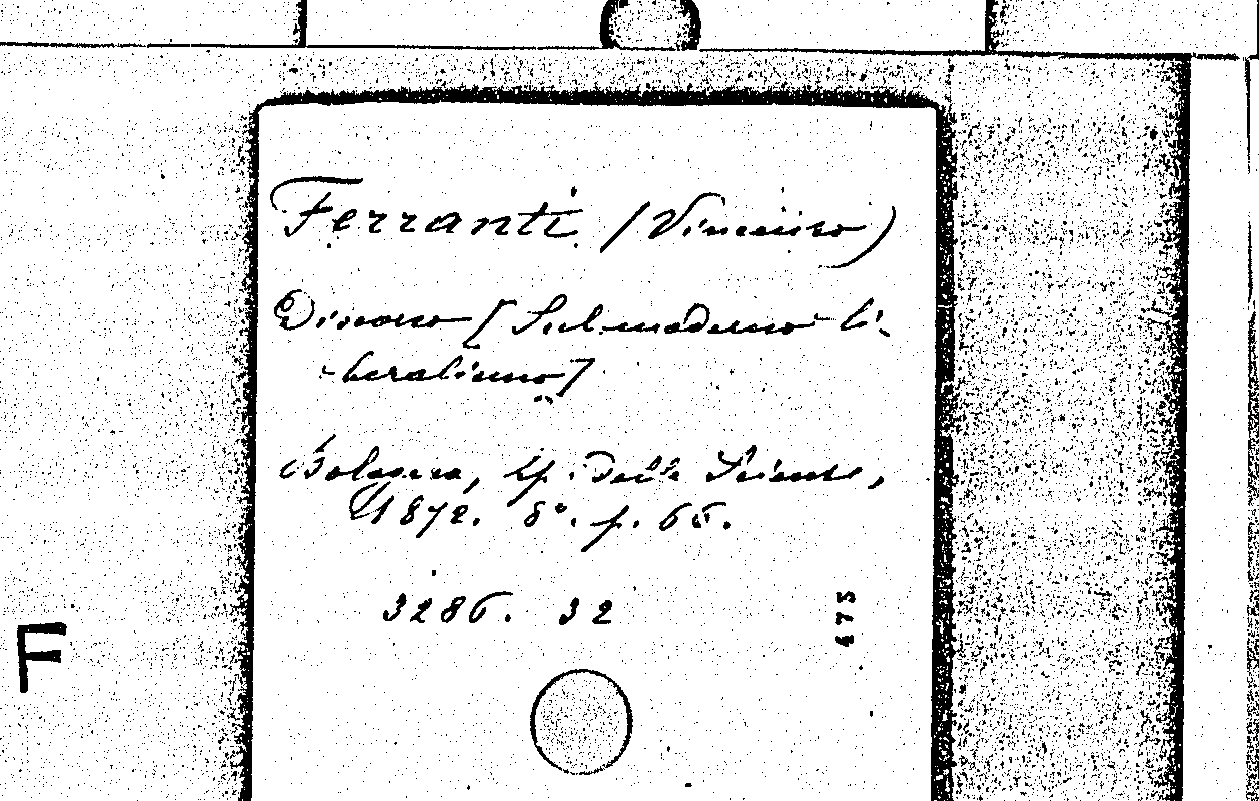 Ferranti (Vincenzo)
Discorso [Sul moderno li-
-beralismo]
Bologna, tip. delle Scienze,
1872. 8°. p. 65.
3286. 32
673
F